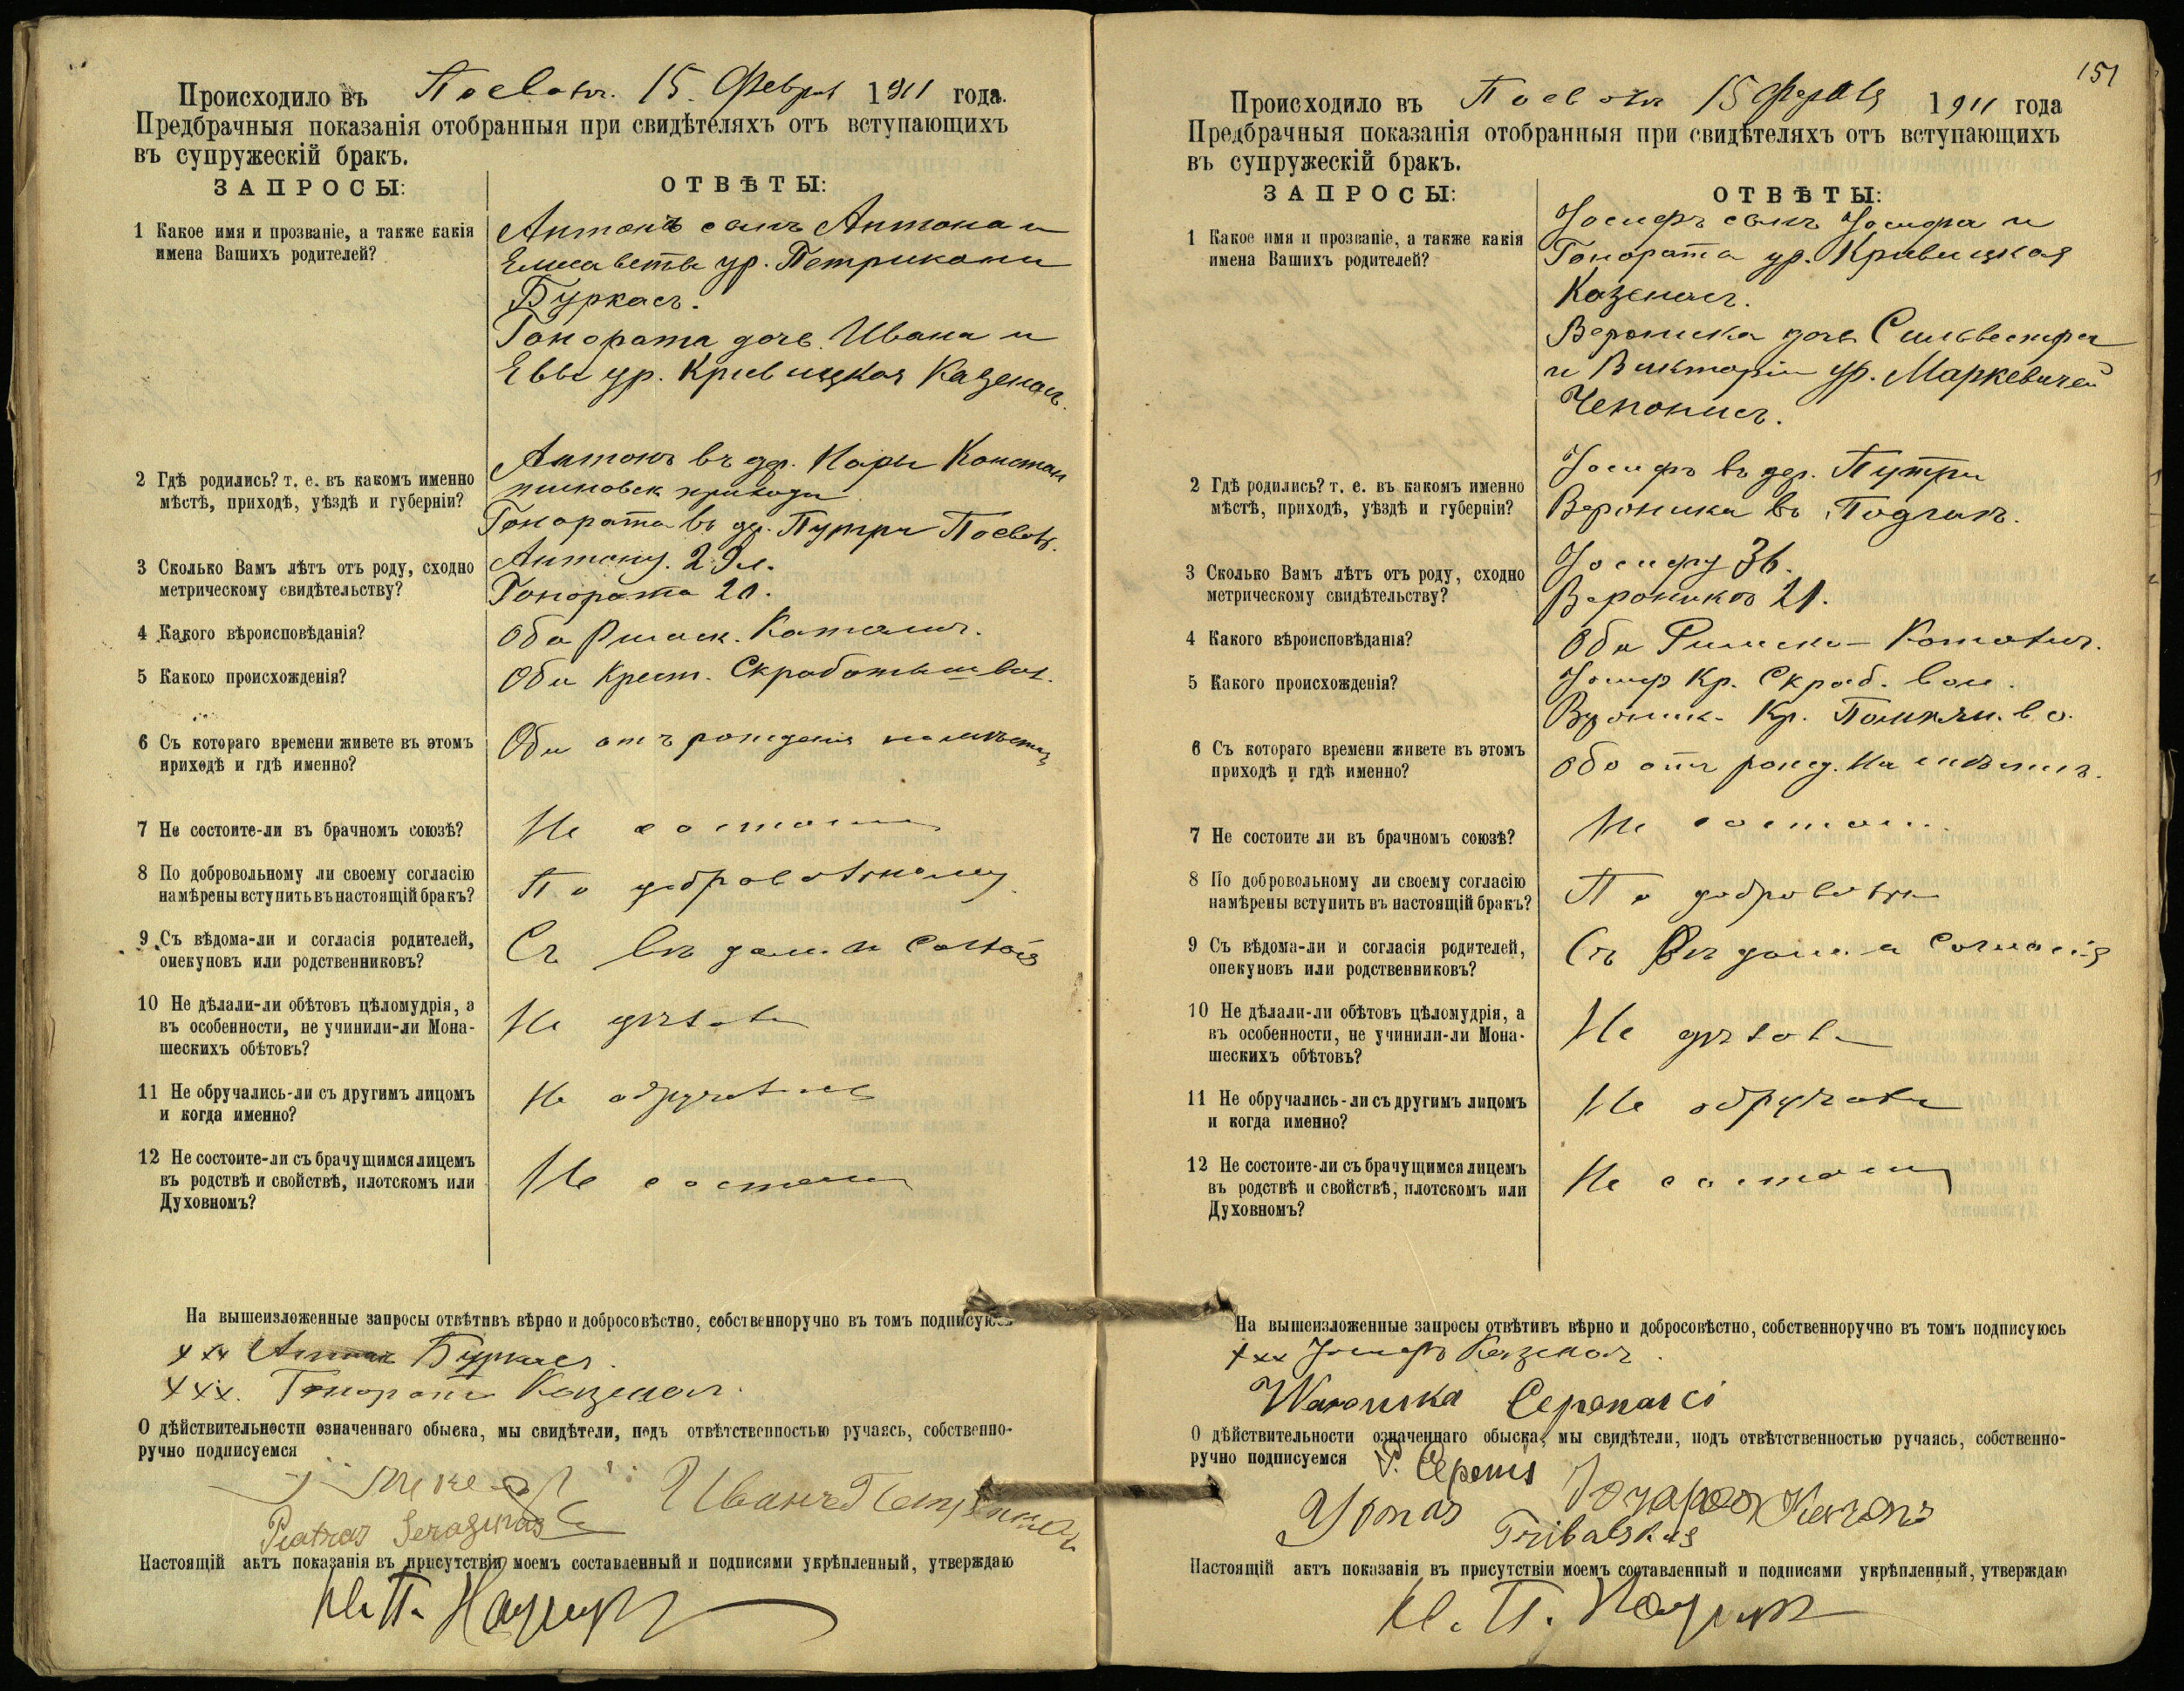 Происходило въ Поевол. 15. Феврал 1911 года.
Предбрачныя показанія отобранныя при свидѣтеляхъ отъ вступающихъ
въ супружескій бракъ.
ЗАПРОСЫ:
ОТВѢТЫ:
1 Какое имя и прозваніе, а также какія
имена Вашихъ родителей?
Антонъ сынъ Антона и
Елисаветы ур. Петрикони
Буркасъ.
Гонората дочь Ивана и
Евы ур. Кривицкая Казенасъ.
2 Гдѣ родились? т. е. въ какомъ именно
мѣстѣ, приходѣ, уѣздѣ и губерніи?
Антонъ въ др. Констан
тиновск прихода
Гонората въ др. Путри Поевол.
3 Сколько Вамъ лѣтъ отъ роду, сходно
метрическому свидѣтельству?
Антону. 29 л.
Гонората 20.
4 Какого вѣроисповѣданія?
Оба Римск. Католич.
5 Какого происхожденія?
Оба Крест. Скработишк вол.
6 Съ котораго времени живете въ этомъ
приходѣ и гдѣ именно?
Оба отъ рожденія на мѣстахъ
7 Не состоите-ли въ брачномъ союзѣ?
Не состоимъ
8 По добровольному ли своему согласію
намѣрены вступить въ настоящій бракъ?
По добровольному
9 Съ вѣдома-ли и согласія родителей,
опекуновъ или родственниковъ?
Съ вѣдома и согласія
10 Не дѣлали-ли обѣтовъ цѣломудрія, а
въ особенности, не учинили-ли Мона-
шескихъ обѣтовъ?
Не дѣлали
11 Не обручались-ли съ другимъ лицомъ
и когда именно?
Не обручались
12 Не состоите-ли съ брачущимся лицемъ
въ родствѣ и свойствѣ, плотскомъ или
Духовномъ?
Не состоимъ
На вышеизложенные запросы отвѣтивъ вѣрно и добросовѣстно, собственноручно въ томъ подписуюсь
ххх Антон Буркасъ.
ххх. Гонората Казенасъ.
О дѣйствительности означеннаго обыска, мы свидѣтели, подъ отвѣтственностью ручаясь, собственно-
ручно подписуемся
Иванъ
Piatras
Настоящій актъ показанія въ присутствіи моемъ составленный и подписями укрѣпленный, утверждаю
151
Происходило въ Поевол 15 Февраля 1911 года
Предбрачныя показанія отобранныя при свидѣтеляхъ отъ вступающихъ
въ супружескій бракъ.
ЗАПРОСЫ:
ОТВѢТЫ:
1 Какое имя и прозваніе, а также какія
имена Вашихъ родителей?
Іосифъ сынъ Іосифа и
Гонората ур. Кривицкая
Казенасъ.
Вероника дочь Сильвестра
и Викторіи ур. Маркевичей
Чепонисъ.
2 Гдѣ родились? т. е. въ какомъ именно
мѣстѣ, приходѣ, уѣздѣ и губерніи?
Іосифъ въ дер. Путри
Вероника въ
3 Сколько Вамъ лѣтъ отъ роду, сходно
метрическому свидѣтельству?
Іосифу 36.
Вероникѣ 21.
4 Какого вѣроисповѣданія?
Оба Римско-Католич.
5 Какого происхожденія?
Іосиф Кр. Скраб. вол.
Верник. Кр. во.
6 Съ котораго времени живете въ этомъ
приходѣ и гдѣ именно?
Оба отъ рожд. на мѣстахъ.
7 Не состоите ли въ брачномъ союзѣ?
Не состоимъ.
8 По добровольному ли своему согласію
намѣрены вступить въ настоящій бракъ?
По добровольн
9 Съ вѣдома-ли и согласія родителей,
опекуновъ или родственниковъ?
Съ вѣдома и согласія
10 Не дѣлали-ли обѣтовъ цѣломудрія, а
въ особенности, не учинили-ли Мона-
шескихъ обѣтовъ?
Не дѣлали
11 Не обручались-ли съ другимъ лицомъ
и когда именно?
Не обручали
12 Не состоите-ли съ брачущимся лицемъ
въ родствѣ и свойствѣ, плотскомъ или
Духовномъ?
Не состоимъ
На вышеизложенные запросы отвѣтивъ вѣрно и добросовѣстно, собственноручно въ томъ подписуюсь
ххх Іосифъ Казенасъ.
Waronika Ceponaici
О дѣйствительности означеннаго обыска, мы свидѣтели, подъ отвѣтственностью ручаясь, собственно-
ручно подписуемся P. Ceponis
Yonas Tribalskas
Настоящій актъ показанія въ присутствіи моемъ составленный и подписями укрѣпленный, утверждаю